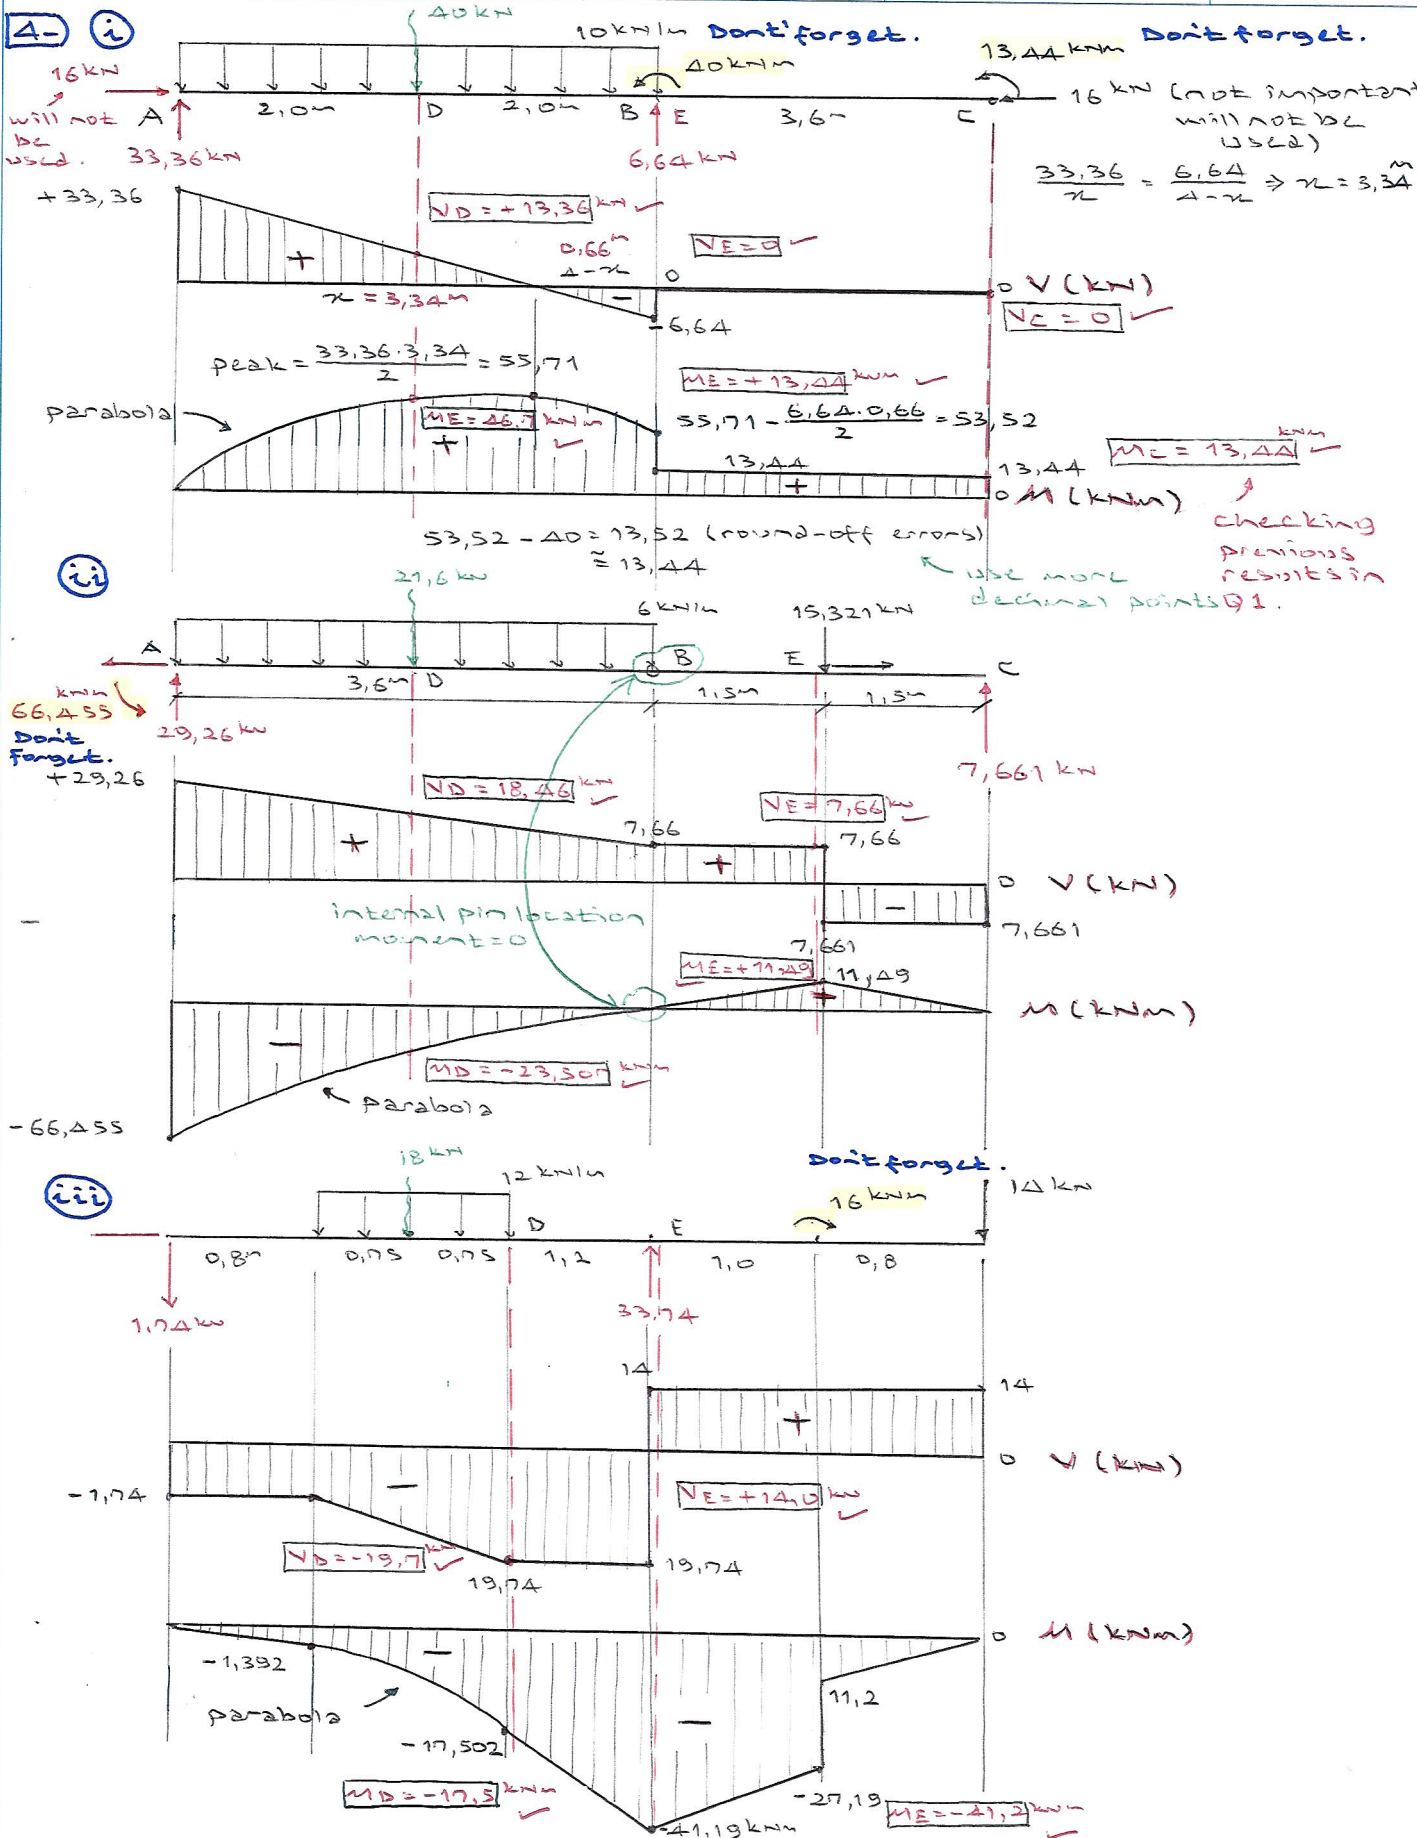 4-) i
40 kN
10 kN/m Dont' forget.
13,44 kNm Don't forget.
16 kN
40 kNm
16 kN (not important will not be used)
will not be used.
A 2,0m D 2,0m B E 3,6m C
33,36 kN
6,64 kN
33,36/x = 6,64/4-x ⇒ x = 3,34 m
+33,36
VD = +13,36 kN ✓
0,66 m
4-x
VE = 0 ✓
+
x = 3,34m
-
0
0 V (kN)
-6,64
VC = 0 ✓
peak = 33,36.3,34/2 = 55,71
ME = +13,44 kNm ✓
parabola
ME = 46,7 kNm ✓
+
55,71 - 6,64.0,66/2 = 53,52
13,44
+
13,44
MC = 13,44 kNm ✓
0 M (kNm)
53,52 - 40 = 13,52 (round-off errors)
≅ 13,44
use more decimal points
checking previous results in Q1.
ii
21,6 kN
6 kN/m
15,321 kN
A B E C
3,6m D 1,5m 1,5m
kNm
66,455
Don't forget.
29,26 kN
7,661 kN
+29,26
VD = 18,46 kN ✓
VE = 7,66 kN ✓
7,66
7,66
+
+
0 V (kN)
-
7,661
internal pin location
moment = 0
7,661
ME = +11,49 ✓
11,49
+
M (kNm)
-
MD = -23,307 kNm ✓
parabola
-66,455
iii
18 kN
12 kN/m
Don't forget.
16 kNm
14 kN
D E
0,8m 0,75 0,75 1,2 1,0 0,8
1,74 kN
33,74
14
14
+
0 V (kN)
-1,74
-
VE = +14,0 kN ✓
VD = -19,7 kN ✓
19,74
19,74
0 M (kNm)
-1,392
-
parabola
11,2
-
-17,502
MD = -17,5 kNm ✓
-27,19
ME = -41,2 kNm ✓
-41,19 kNm